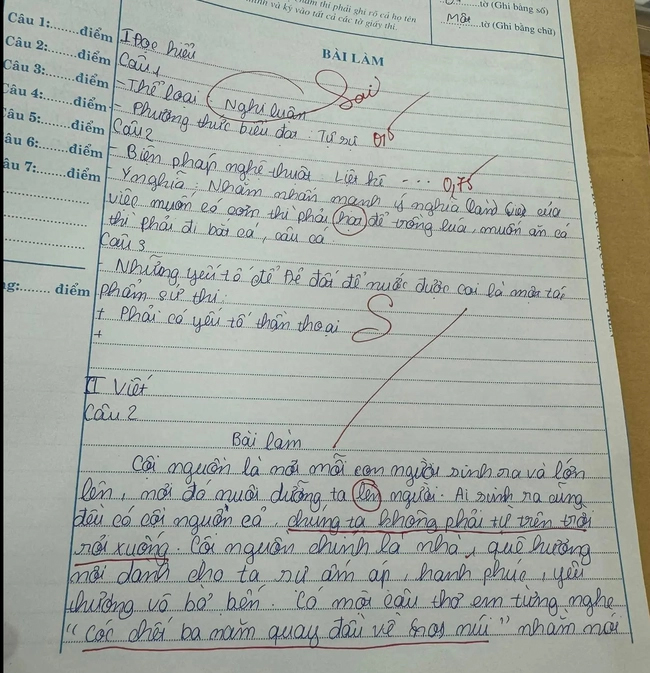 thăm thi phải ghi rõ cả họ tên
mình và ký vào tất cả các tờ giấy thi.
tờ (Ghi bằng số)
Một tờ (Ghi bằng chữ)
BÀI LÀM
Câu 1:.......điểm
Câu 2:.......điểm
Câu 3:.......điểm
Câu 4:.......điểm
Câu 5:.......điểm
âu 6:.......điểm
âu 7:.......điểm
ng:....... điểm
I Đọc hiểu
Câu 1
- Thể loại: Nghị luận Sai
- Phương thức biểu đạt: Tự sự
Câu 2
- Biện pháp nghệ thuật: Liệt kê ... 0,75
- Ý nghĩa: Nhằm nhấn mạnh ý nghĩa của
việc muốn có cơm thì phải để trồng lúa, muốn ăn cá
thì phải đi bắt cá, câu cá.
Câu 3
- Những yếu tố để Đẻ đất đẻ nước được coi là một tác
phẩm sử thi:
+ Phải có yếu tố thần thoại S
+
II Viết
Câu 2
Bài làm
Cội nguồn là nơi mỗi con người sinh ra và lớn
lên, nơi đó nuôi dưỡng ta lên người. Ai sinh ra cũng
đều có cội nguồn cả, chúng ta không phải từ trên trời
rơi xuống. Cội nguồn chính là nhà, quê hương
nơi dành cho ta sự ấm áp, hạnh phúc, yêu
thương vô bờ bến. Có một câu thơ em từng nghe
"Cóc chết ba năm quay đầu về núi" nhằm nói